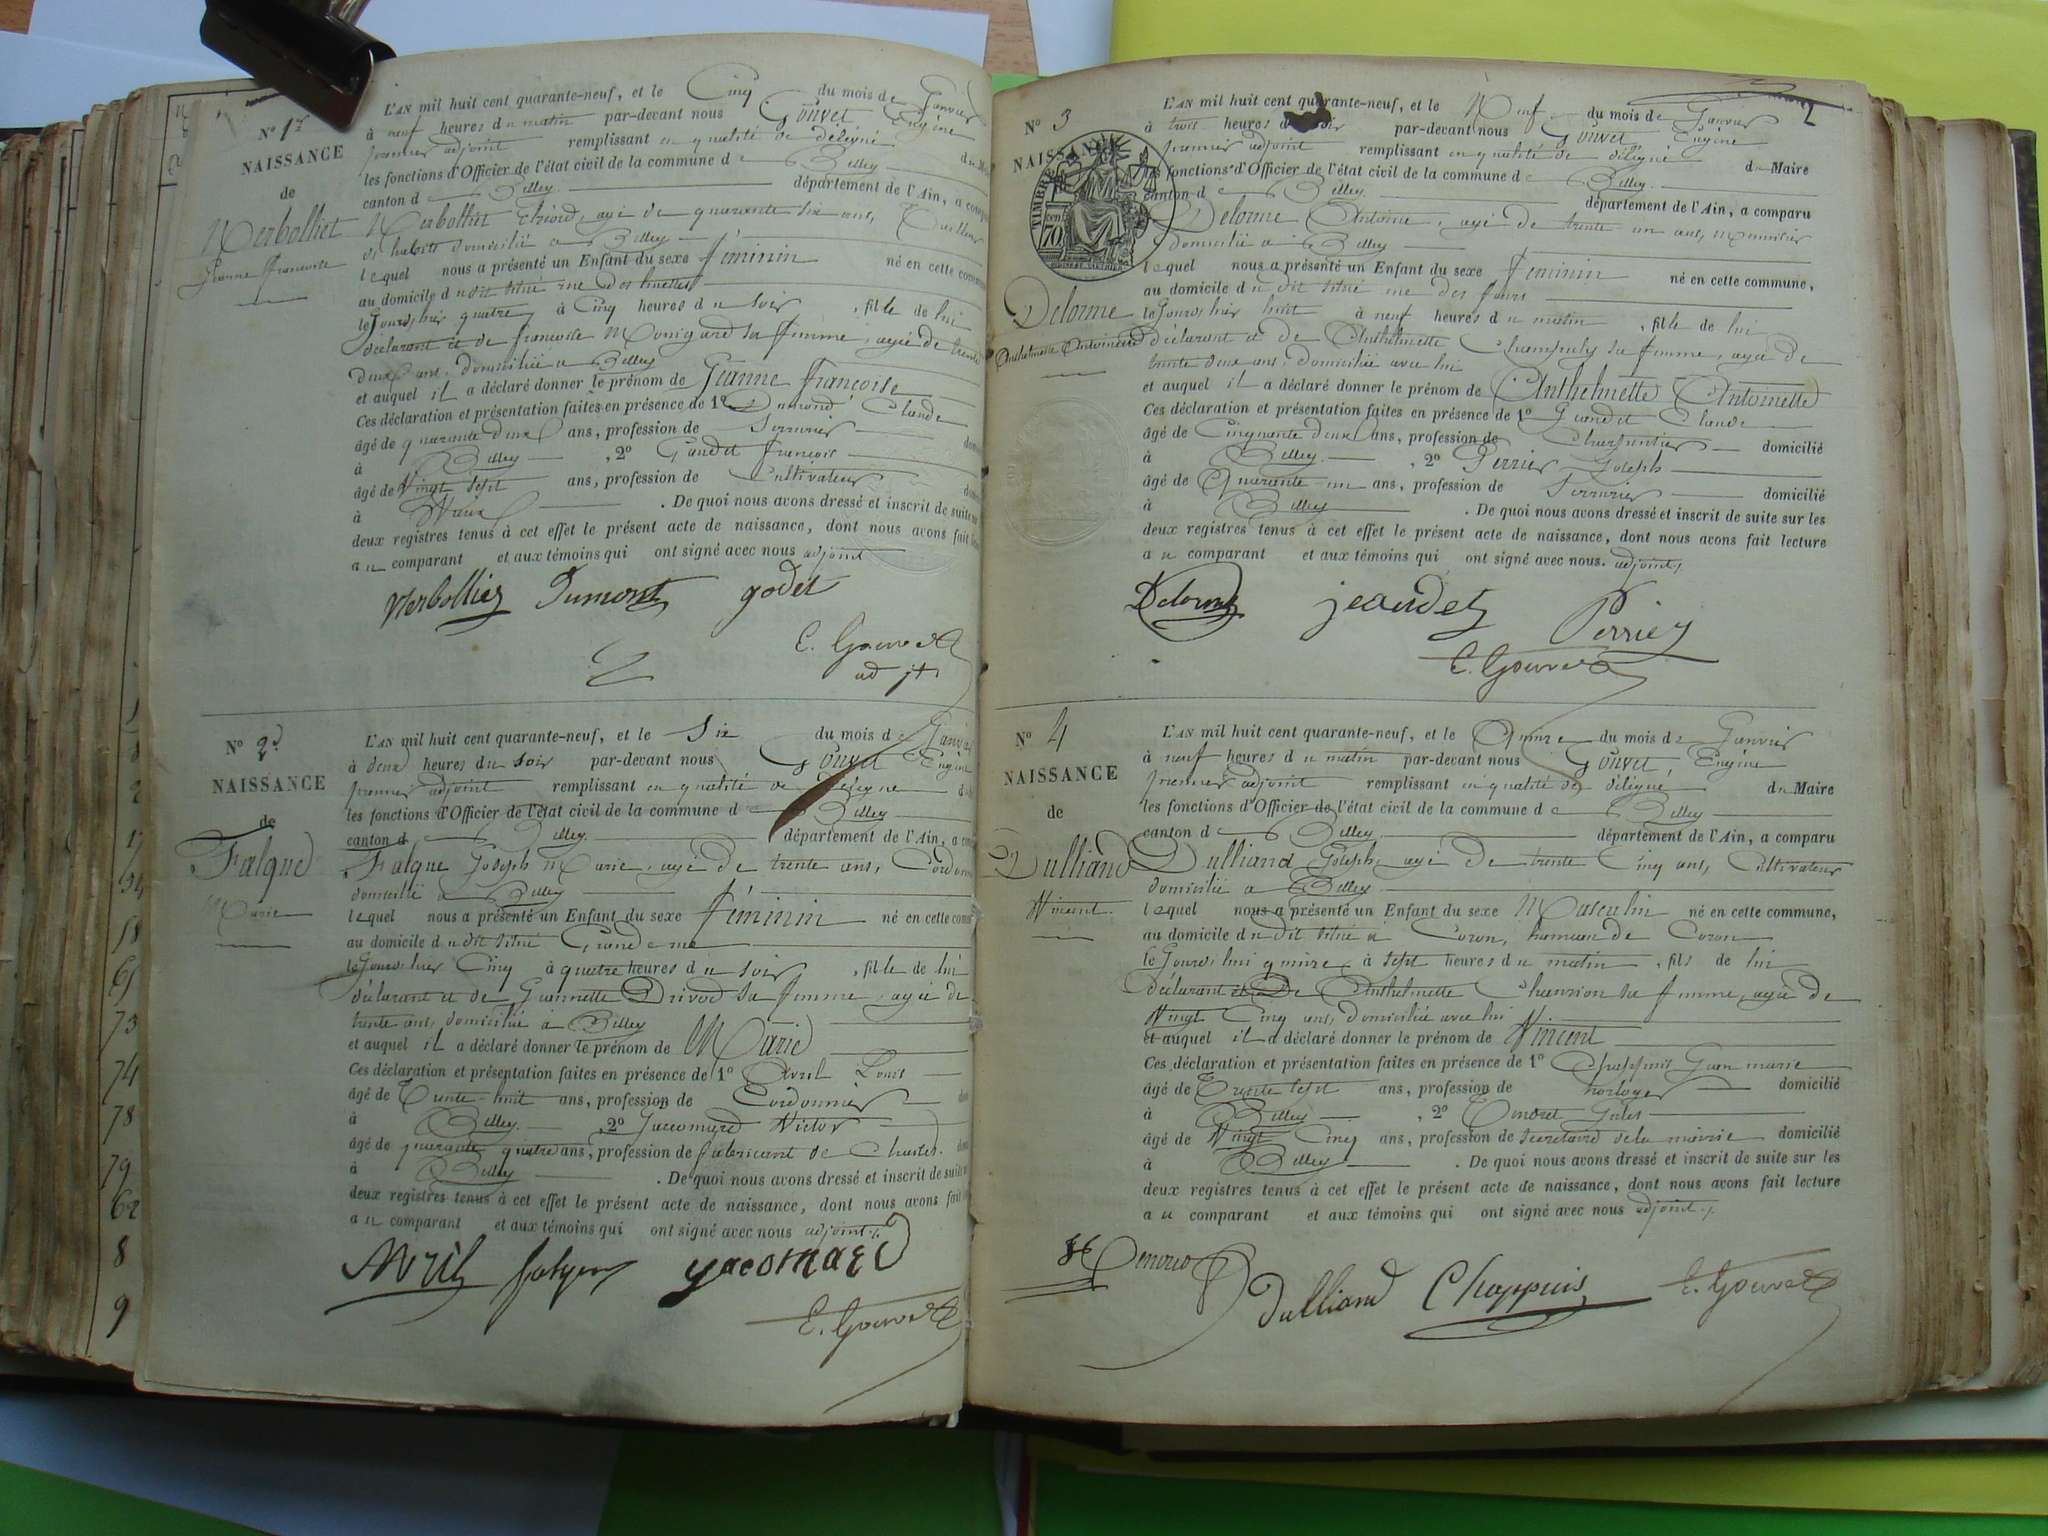 N° 1er
NAISSANCE
de
Verbolliet
Jeanne Françoise
L'AN mil huit cent quarante-neuf, et le Cinq du mois de Janvier
à neuf heures du matin par-devant nous Gouvet Eugène
premier adjoint remplissant en qualité de délégué du
les fonctions d'Officier de l'état civil de la commune de Belley
canton de Belley département de l'Ain, a comparu
Verbolliet agé de quarante six ans, Tailleur
d'habits domicilié à Belley
lequel nous a présenté un Enfant du sexe féminin né en cette commune
au domicile du dit situé rue des
le Jourd'hier quatre à Cinq heures du soir, fille de lui
déclarant et de françoise sa femme, agée de trente
deux ans, domiciliée à Belley
et auquel il a déclaré donner le prénom de Jeanne françoise
Ces déclaration et présentation faites en présence de 1° Dumond Claude
âgé de quarante deux ans, profession de Serrurier
à Belley, 2° Gaudet françois
âgé de Vingt sept ans, profession de Cultivateur
à . De quoi nous avons dressé et inscrit de suite sur
deux registres tenus à cet effet le présent acte de naissance, dont nous avons fait
au comparant et aux témoins qui ont signé avec nous adjoint
Verbollier Dumont godet
E. Gouvet
adjt
N° 2d
NAISSANCE
de
Falque
Marie
L'AN mil huit cent quarante-neuf, et le Six du mois de Janvier
à deux heures du soir par-devant nous Gouvet Eugène
premier adjoint remplissant en qualité de délégué
les fonctions d'Officier de l'état civil de la commune de Belley
canton de Belley département de l'Ain, a
Falque Joseph Marie, agé de trente ans, Cordonnier
domicilié à Belley
lequel nous a présenté un Enfant du sexe féminin né en cette
au domicile du dit situé Grande rue
le Jourd'hier Cinq à quatre heures du soir, fille de lui
déclarant et de Jeannette Drivod sa femme, agée de
trente ans, domiciliée à Belley
et auquel il a déclaré donner le prénom de Marie
Ces déclaration et présentation faites en présence de 1° Avril Louis
âgé de Trente-huit ans, profession de Cordonnier
à Belley, 2° Jaccomard Victor
âgé de quarante quatre ans, profession de fabricant de
à Belley . De quoi nous avons dressé et inscrit de suite
deux registres tenus à cet effet le présent acte de naissance, dont nous avons fait
au comparant et aux témoins qui ont signé avec nous adjoint
Avril yacomard
E. Gouvet
2
N° 3
NAISSANCE
TIMBRE
70
Delorme
Anthelmette Antoinette
L'AN mil huit cent quarante-neuf, et le Neuf du mois de Janvier
à trois heures du soir par-devant nous Gouvet Eugène
premier adjoint remplissant en qualité de délégué du Maire
les fonctions d'Officier de l'état civil de la commune de Belley
canton de Belley département de l'Ain, a comparu
Delorme Antoine, agé de trente un ans, menuisier
domicilié à Belley
lequel nous a présenté un Enfant du sexe féminin né en cette commune,
au domicile du dit situé rue des fours
le Jourd'hier huit à neuf heures du matin, fille de lui
déclarant et de Anthelmette sa femme, agée de
trente deux ans, domiciliée avec lui
et auquel il a déclaré donner le prénom de Anthelmette Antoinette
Ces déclaration et présentation faites en présence de 1° Jeandet Claude
âgé de Cinquante deux ans, profession de Charpentier domicilié
à Belley, 2° Perrier Joseph
âgé de Quarante-un ans, profession de Serrurier domicilié
à Belley . De quoi nous avons dressé et inscrit de suite sur les
deux registres tenus à cet effet le présent acte de naissance, dont nous avons fait lecture
au comparant et aux témoins qui ont signé avec nous. adjoint
Delorme jeaudet Perrier
E. Gouvet
N° 4
NAISSANCE
de
Dulliand
Vincent
L'AN mil huit cent quarante-neuf, et le Quinze du mois de Janvier
à neuf heures du matin par-devant nous Gouvet, Eugène
premier adjoint remplissant en qualité de délégué du Maire
les fonctions d'Officier de l'état civil de la commune de Belley
canton de Belley département de l'Ain, a comparu
Dulliand Joseph, agé de trente Cinq ans, Cultivateur
domicilié à Belley
lequel nous a présenté un Enfant du sexe Masculin né en cette commune,
au domicile du dit situé à Coron, hameau de Coron
le Jourd'hui quinze à sept heures du matin, fils de lui
déclarant et De Anthelmette Chanrion sa femme, agée de
Vingt Cinq ans, domiciliée avec lui
et auquel il a déclaré donner le prénom de Vincent
Ces déclaration et présentation faites en présence de 1° Chappuis Jean marie
âgé de Trente sept ans, profession de horloger domicilié
à Belley, 2° Jules
âgé de Vingt Cinq ans, profession de secrétaire de la mairie domicilié
à Belley . De quoi nous avons dressé et inscrit de suite sur les
deux registres tenus à cet effet le présent acte de naissance, dont nous avons fait lecture
au comparant et aux témoins qui ont signé avec nous adjoint
Dulliand Chappuis E. Gouvet